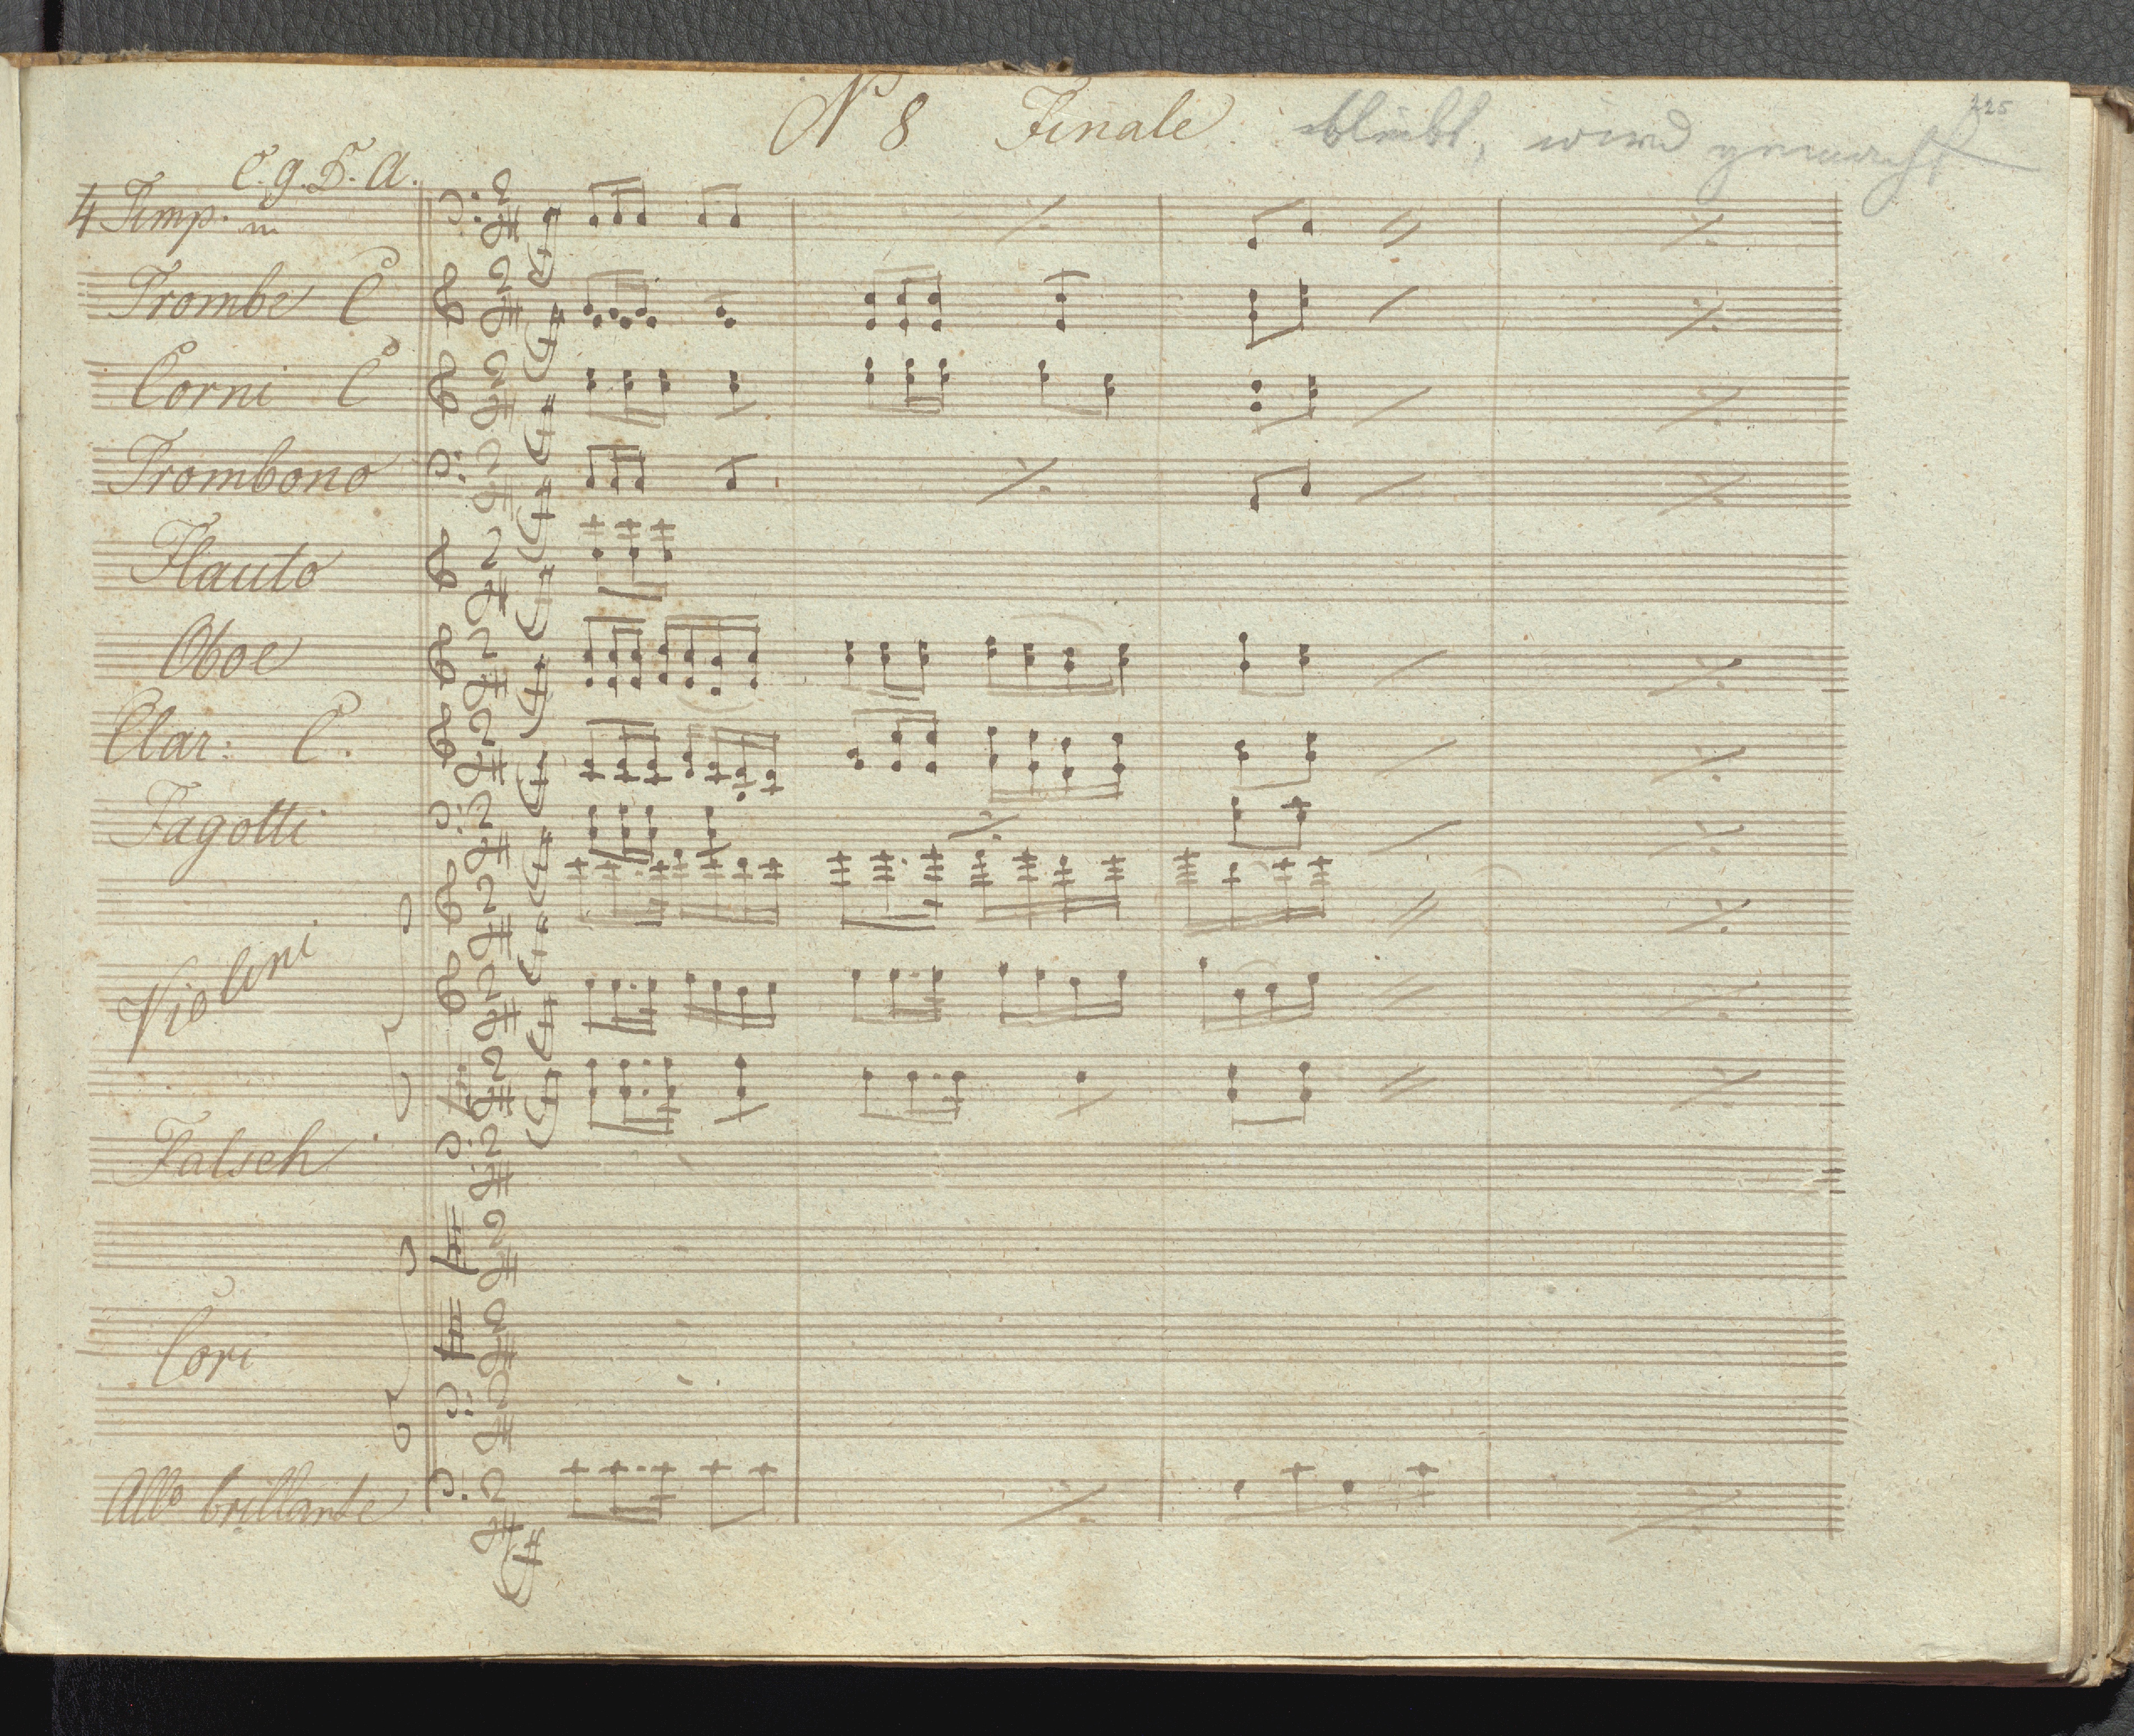 225
Nº 8 Finale. bleibt, wird gemacht
C. g. D. A.
4 Timp. in
Trombe C
Corni C
Trombono
Flauto
Oboe
Clar: C.
Fagotti
Violini
Falsch
Cori
Allº brillante